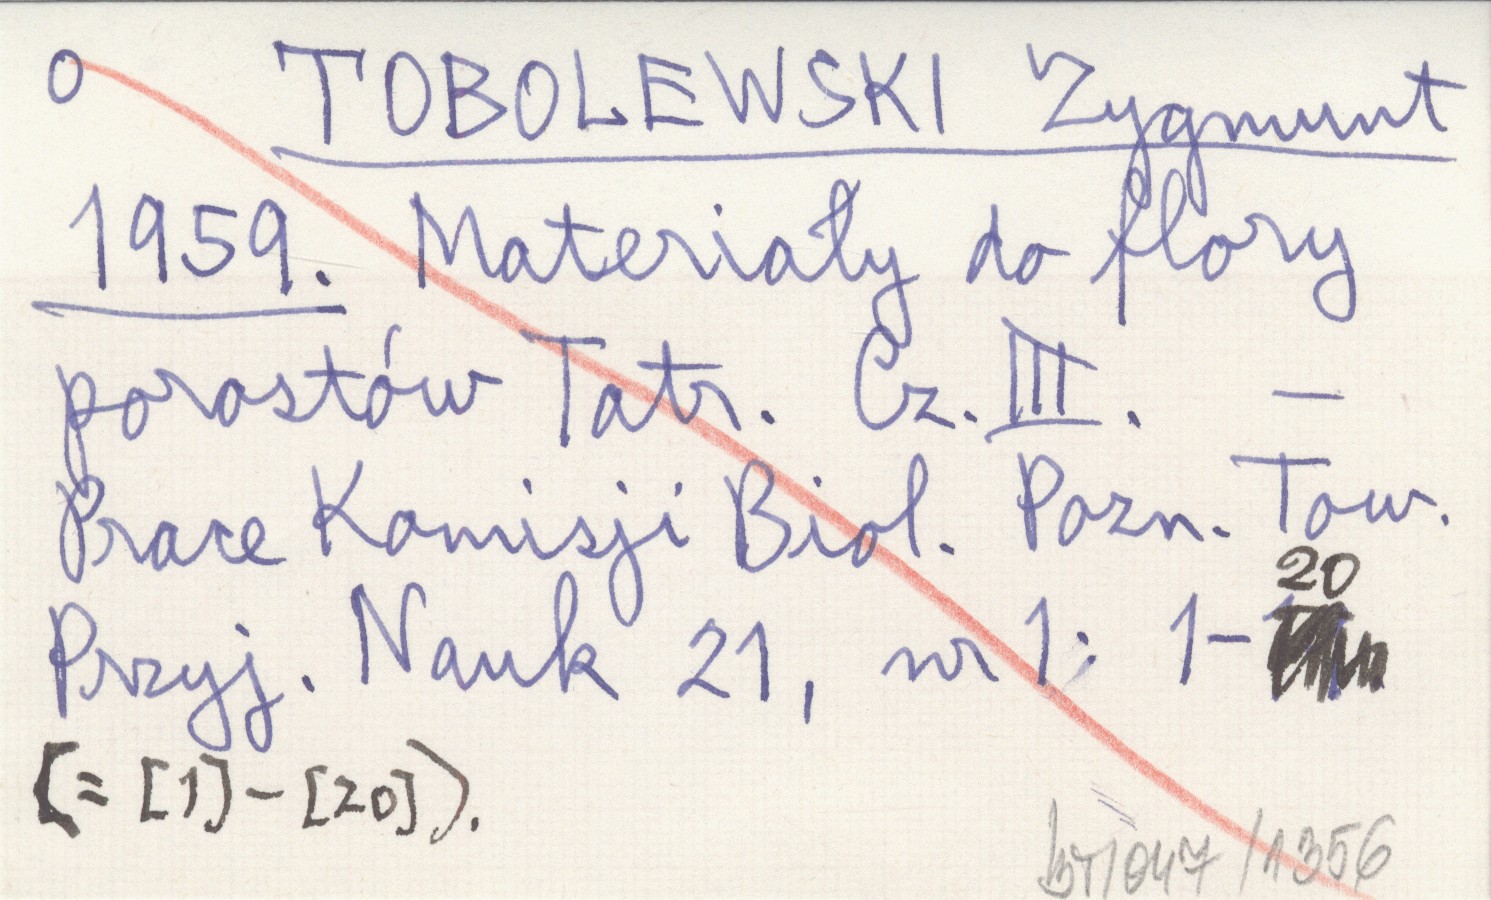 o TOBOLEWSKI Zygmunt
1959. Materiały do flory
porostów Tatr. Cz. III. –
Prace Komisji Biol. Pozn. Tow.
20
Przyj. Nauk 21, nr 1: 1-
(= [1] - [20]).
/047/1356